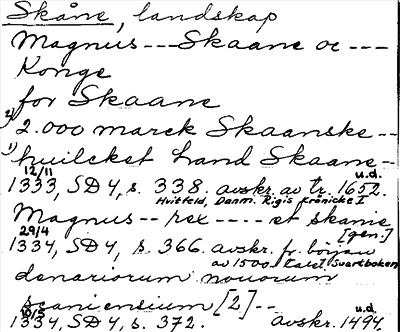 Skåne, landskap
Magnus --- Skaane oc ---
Konge
for Skaane
2) 2.000 marck Skaanske --
1) huilcket Land Skaane -
12/11 u.d.
1333, SD 4, s. 338. avskr. av tr. 1652.
Huitfeld, Danm. Rigis Krønicke I
Magnus -- rex ---- et skanie
29/4 [gen.]
1334, SD 4, s. 366. avskr. fr. början
av 1500-talet Svartboken
denariorum nouorum
scaniensium [2] --
u.d.
1334, SD 4, s. 372. avskr. 1494.